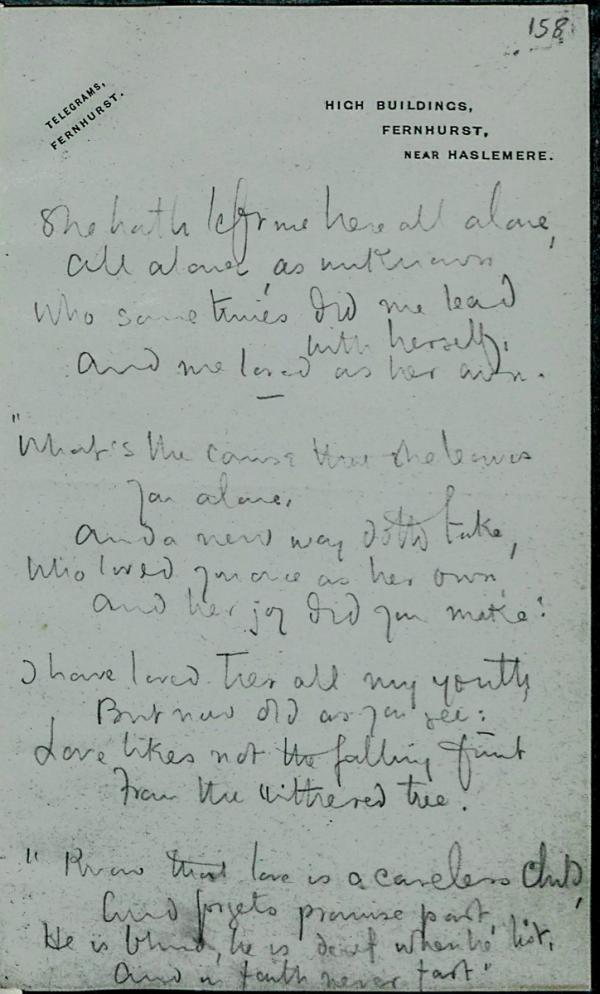 158
TELEGRAMS,
FERNHURST.
HIGH BUILDINGS,
FERNHURST,
NEAR HASLEMERE.
She hath left me here all alone,
All alone, as unknown
Who sometimes did me lead
with herself,
And me loved as her own.
"What's the cause that she leaves
you alone,
And a new way doth take,
Who loved you once as her own
And her joy did you make?
I have loved her all my youth
But now old as you see:
Love likes not the falling fruit
From the withered tree.
" Know that love is a careless child,
And forgets promise past,
He is blind, he is deaf when he list,
And in faith never fast"